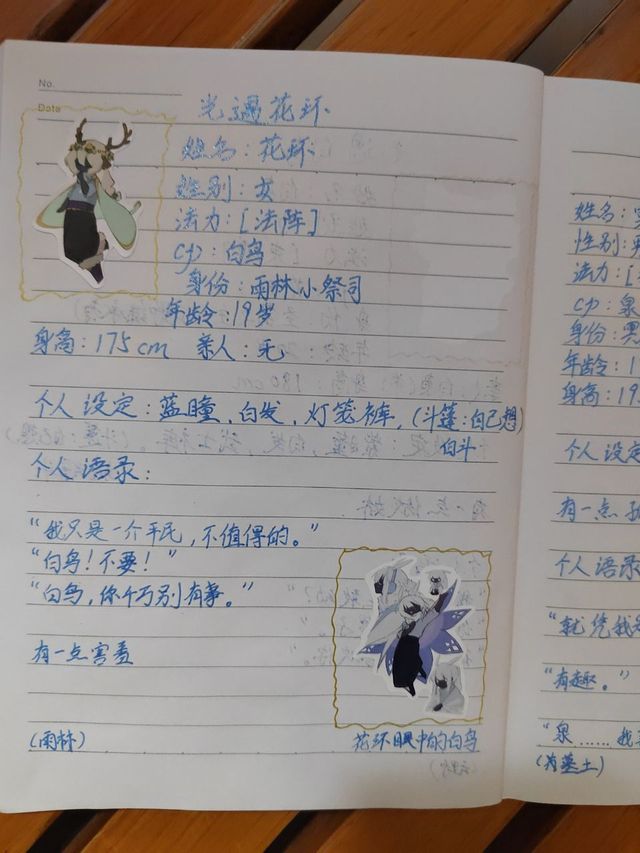 No.
Date
光遇花环
姓名：花环
姓别：女
法力：[法阵]
cp：白鸟
身份：雨林小祭司
年龄：19岁
身高：175cm 亲人：无
个人设定：蓝瞳，白发，灯笼裤，(斗篷：自己想)
白斗
个人语录：
“我只是一个平民，不值得的。”
“白鸟！不要！”
“白鸟，你千万别有事。”
有一点害羞
(雨林)
花环眼中的白鸟
姓名：
性别：
法力：[
cp：泉
身份：
年龄：1
身高：17
个人设定
有一点
个人语录
“就凭我
“有趣。”
“泉……我
(为墓土)